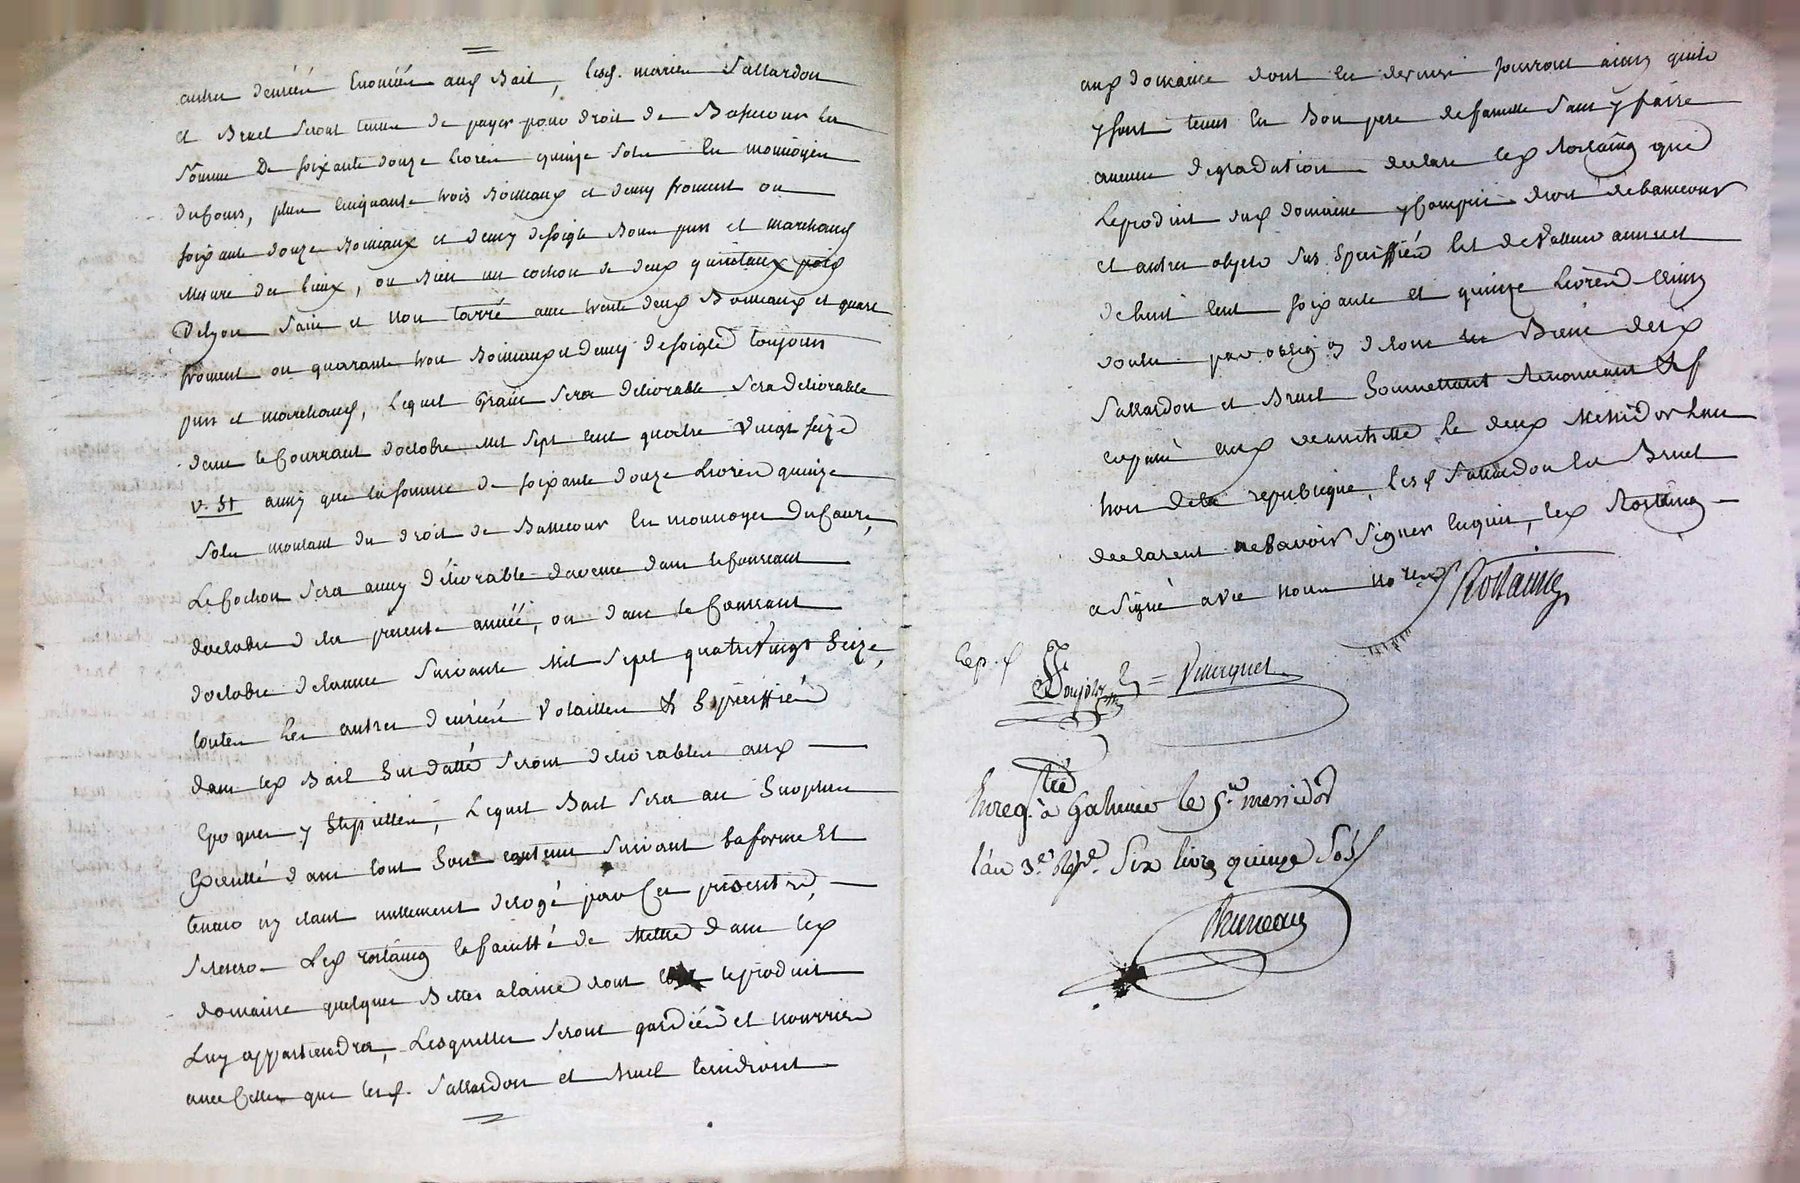 autres denréés Enoncéés aux Bail, lesd. mariés Sallardon
et Bruel seront tenus de payer pour droit de Bassecour la
somme De soixante douze Livres quinze sols En monnoyes
du Cours, plus Cinquante trois Boisseaux et demy froment ou
soixante douze Boisseaux et demy de soigle Bons purs et marchands
Mesure des lieux, ou Bien un cochon de deux quintaux poids
De Lyon sain et Non tarré avec trente deux Boisseaux et quart
froment ou quarante trois Boisseaux et demy de soigle toujours
purs et marchands, Lequel Grain sera délivrable sera délivrable
dans le Courrant d'octobre Mil Sept Cent quatre Vingt seize
V. St aussy que la somme de soixante douze Livres quinze
sols montant du droit de Bassecour En monnoyes Du Cours,
Le Cochon sera aussy délivrable davence dans le Courrant
doctobre de la presente année, ou dans le Courrant
doctobre de lannée Suivante Mil Sept quatre Vingt Seize,
toutes Les autres denréés Volailles & Spéciffiés
dans led Bail Sus datté seront délivrables aux
Epoques y Stipulléés, Lequel Bail sera au Surplus
Exécutté dans tout Son contenu Suivant Sa forme Et
teneur ny étant nullement dérogé par Ces présentes,
Se reserve Led rostaing la facultté de Mettre dans led
domaine quelques Bettes a laine dont le produit
Luy appartiendra, Lesquelles seront gardéés et nourries
avec Celles que lesd. Sallardon et Bruel tiendront
aux domaine dont les derniers jouiront ainsy quils
y sont tenus En Bon pere de famille Sans y faire
aucune dégradation déclare led Rostaing que
Le produit dud domaine y Compris droit de bassecour
et autres objets Sus Spéciffiés Est de Valleur annuel
de huit Cent soixante et quinze Livres Ainsy
voulu par obligon de tous les Biens desd
Sallardon et Bruel Soumettant Renonceant &
a signé avec nous No.res Rostaing
Vincquet
Enreg. té à Galmier le 5.me messidor
l'an 3.e Rép.e Six livres quinze Sols